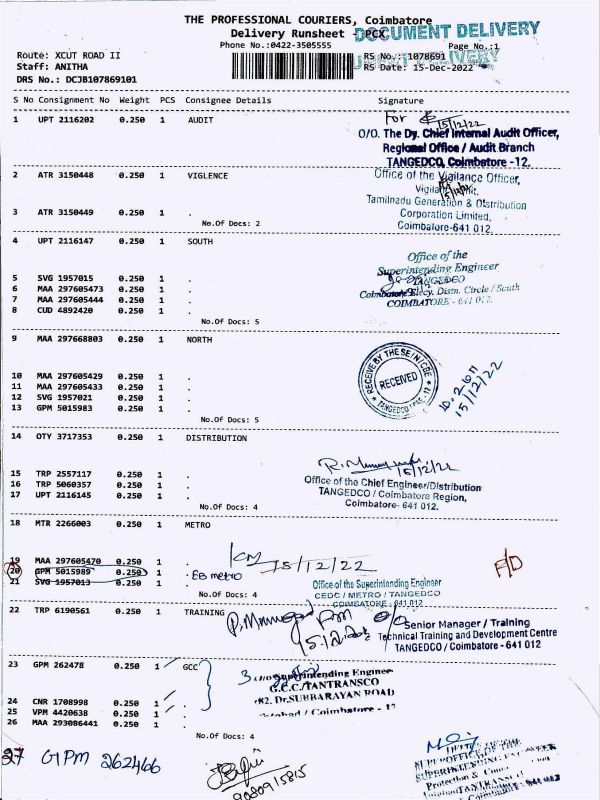 THE PROFESSIONAL COURIERS, Coimbatore
Delivery Runsheet - PCX
DOCUMENT DELIVERY
Phone No.:0422-3505555
Page No.:1
Route: XCUT ROAD II
RS No.: 1078691
Staff: ANITHA
RS Date: 15-Dec-2022
DRS No.: DCJB107869101
S No Consignment No Weight PCS Consignee Details Signature
1 UPT 2116202 0.250 1 AUDIT
For
15/12/22
O/O. The Dy. Chief Internal Audit Officer,
Regional Office / Audit Branch
TANGEDCO, Coimbatore -12.
2 ATR 3150448 0.250 1 VIGLENCE
Office of the Vigilance Officer,
Tamilnadu Generation & Distribution
3 ATR 3150449 0.250 1 .
Corporation Limited,
No.Of Docs: 2
Coimbatore-641 012.
4 UPT 2116147 0.250 1 SOUTH
Office of the
Superintending Engineer
5 SVG 1957015 0.250 1 .
TANGEDCO
6 MAA 297605473 0.250 1 .
Coimbatore Elecy. Distn. Circle / South
7 MAA 297605444 0.250 1 .
COIMBATORE - 641 012.
8 CUD 4892420 0.250 1 .
No.Of Docs: 5
9 MAA 297668803 0.250 1 NORTH
RECEIVED
15/12/22
10 MAA 297605429 0.250 1 .
11 MAA 297605433 0.250 1 .
12 SVG 1957021 0.250 1 .
13 GPM 5015983 0.250 1 .
No.Of Docs: 5
14 OTY 3717353 0.250 1 DISTRIBUTION
15/12/22
15 TRP 2557117 0.250 1 .
Office of the Chief Engineer/Distribution
16 TRP 5060357 0.250 1 .
TANGEDCO / Coimbatore Region,
17 UPT 2116145 0.250 1 .
Coimbatore- 641 012.
No.Of Docs: 4
18 MTR 2266003 0.250 1 METRO
19 MAA 297605470 0.250 1 .
15/12/22
20 GPM 5015989 0.250 1 .
EB metro
21 SVG 1957013 0.250 1 .
Office of the Superintending Engineer
No.Of Docs: 4
CEDC / METRO / TANGEDCO
COIMBATORE - 641 012
22 TRP 6190561 0.250 1 TRAINING
O/o
Senior Manager / Training
Technical Training and Development Centre
TANGEDCO / Coimbatore - 641 012
23 GPM 262478 0.250 1 GCC
Superintending Engineer
G.C.C./TANTRANSCO
24 CNR 1708998 0.250 1 .
82. Dr.SUBBARAYAN ROAD
25 VPM 4420638 0.250 1 .
26 MAA 293086441 0.250 1 .
No.Of Docs: 4
27 GPM 262466
9080915815